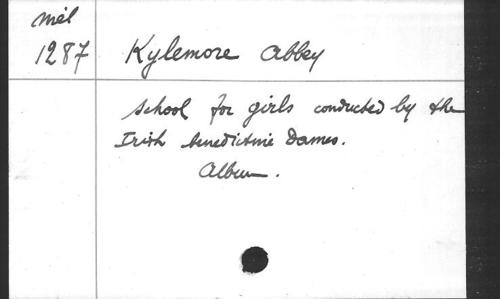 mél
1287 Kylemore Abbey
School for girls conducted by the
Irish benedictine Dames.
Album.